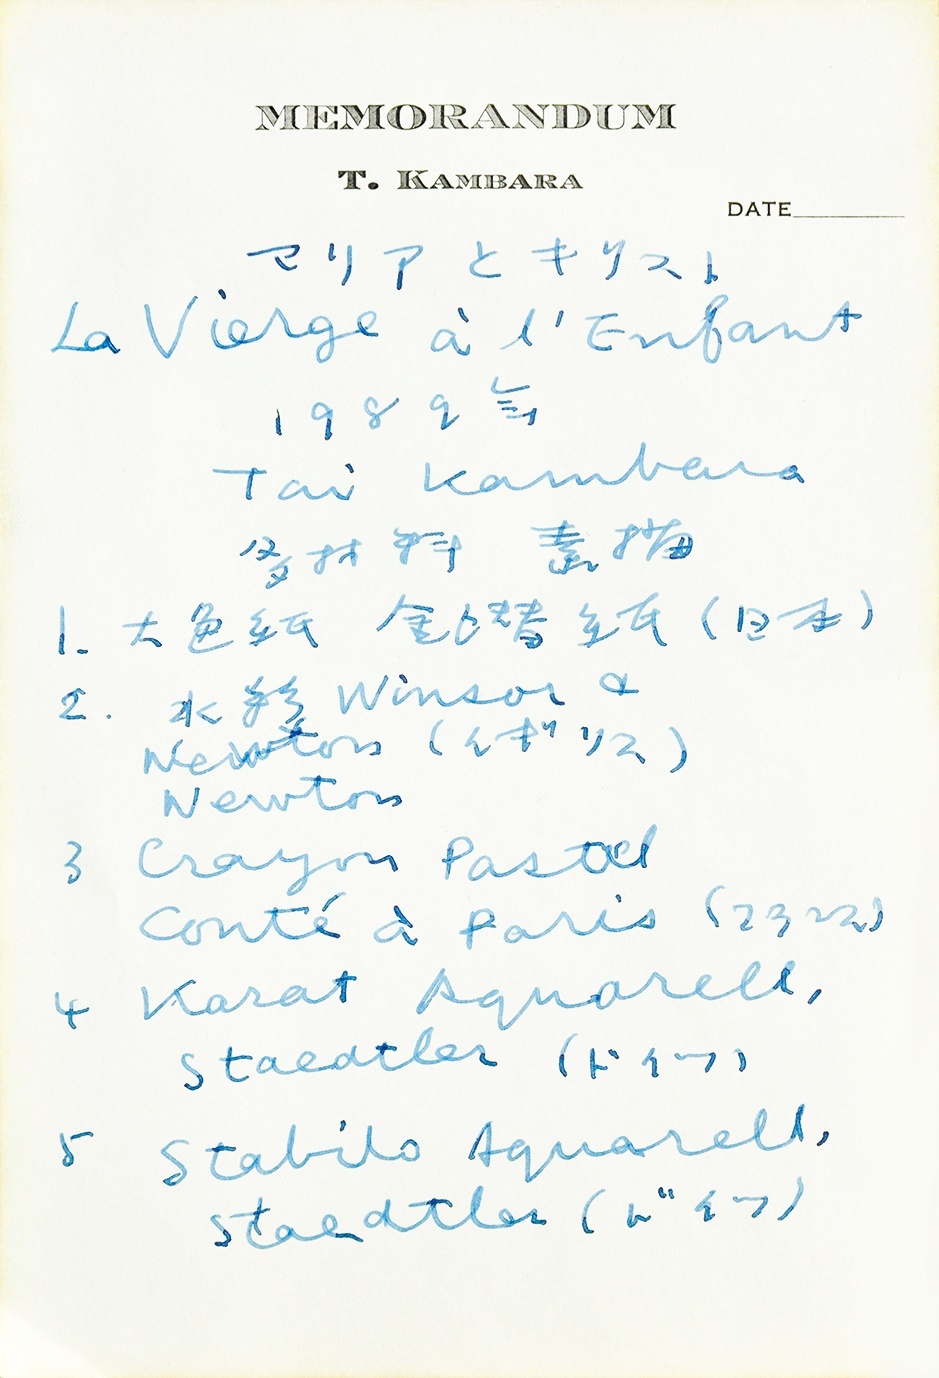 MEMORANDUM
T. KAMBARA
DATE
マリアとキリスト
La Vierge à l'Enfant
1989年
Tai Kambara
多材料 素描
1.大色紙 金潜紙(日本)
2. 水彩 Winsor &
Newton (イギリス)
Newton
3 Crayon Pastel
Conté à Paris (フランス)
4 Karat Aquarell,
Staedtler (ドイツ)
5 Stabilo Aquarell,
Staedtler (ドイツ)